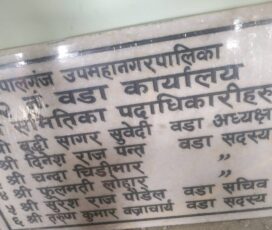 पालगंज उपमहानगरपालिका
नं. वडा कार्यालय
पदाधिकारीहरु
श्री बुद्धी सागर सुवेदी वडा अध्यक्ष
श्री दिनेश राज पन्त वडा सदस्य
श्री चन्दा चिडीमार ,,
श्री फुलमती लोहार ,,
५ श्री सुरेश राज पौडेल वडा सचिव
६ श्री तरुण कुमार वज्राचार्य वडा सदस्य